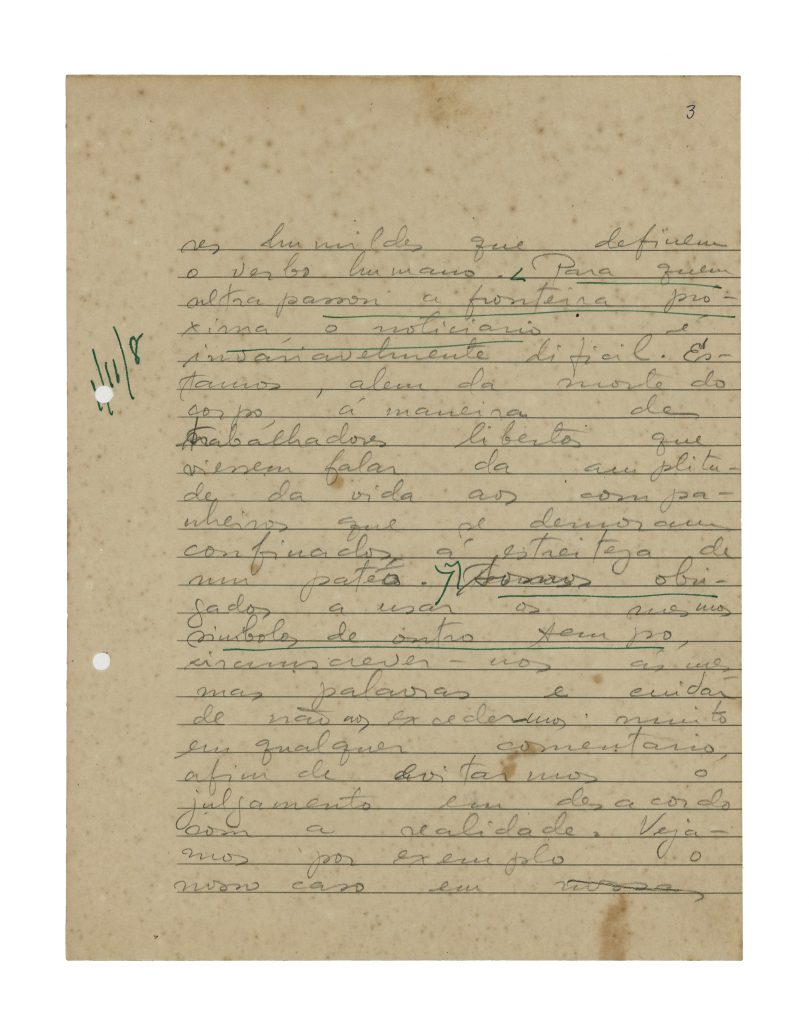 3
res humildes que definem
o verbo humano. Para quem
ultrapassou a fronteira pro-
xima, o noticiario é
invariavelmente dificil. Es-
tamos, alem da morte do
corpo, á maneira de
trabalhadores libertos que
viessem falar da amplitu-
de da vida aos compa-
nheiros que se demoram
confinados á estreiteza de
um pateo. Somos obri-
gados a usar os mesmos
simbolos de outro tempo,
circunscrever-nos ás mes
mas palavras e cuidar
de não nos excedermos muito
em qualquer comentario,
afim de evitarmos o
julgamento em desacordo
com a realidade. Veja-
mos por exemplo o
nosso caso em nossas